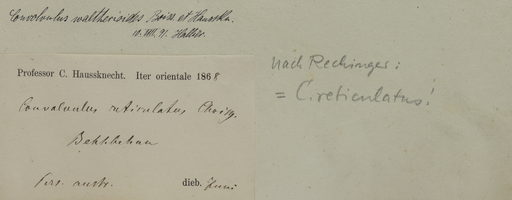 Convolvulus waltherioides Boiss et Hausskn.
Professor C. Haussknecht. Iter orientale 1868
Convolvulus reticulatus Choisy.
Pers. austr. dieb. Juni
nach Rechinger:
= C. reticulatus!